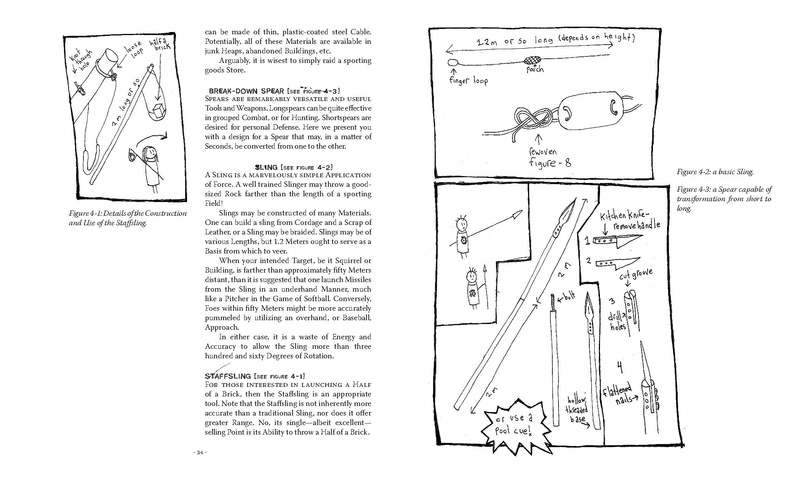 knot
through
hole
loose
loop
half a
brick
2m long or so
Figure 4-1: Details of the Construction
and Use of the Staffsling.
can be made of thin, plastic-coated steel Cable.
Potentially, all of these Materials are available in
junk Heaps, abandoned Buildings, etc.
Arguably, it is wisest to simply raid a sporting
goods Store.
BREAK-DOWN SPEAR [SEE FIGURE 4-3]
SPEARS ARE REMARKABLY VERSATILE AND USEFUL
Tools and Weapons. Longspears can be quite effective
in grouped Combat, or for Hunting. Shortspears are
desired for personal Defense. Here we present you
with a design for a Spear that may, in a matter of
Seconds, be converted from one to the other.
SLING [SEE FIGURE 4-2]
A SLING IS A MARVELOUSLY SIMPLE APPLICATION
of Force. A well trained Slinger may throw a good-
sized Rock farther than the length of a sporting
Field!
Slings may be constructed of many Materials.
One can build a sling from Cordage and a Scrap of
Leather, or a Sling may be braided. Slings may be of
various Lengths, but 1.2 Meters ought to serve as a
Basis from which to veer.
When your intended Target, be it Squirrel or
Building, is farther than approximately fifty Meters
distant, than it is suggested that one launch Missiles
from the Sling in an underhand Manner, much
like a Pitcher in the Game of Softball. Conversely,
Foes within fifty Meters might be more accurately
pummeled by utilizing an overhand, or Baseball,
Approach.
In either case, it is a waste of Energy and
Accuracy to allow the Sling more than three
hundred and sixty Degrees of Rotation.
STAFFSLING [SEE FIGURE 4-1]
FOR THOSE INTERESTED IN LAUNCHING A HALF
of a Brick, then the Staffsling is an appropriate
tool. Note that the Staffsling is not inherently more
accurate than a traditional Sling, nor does it offer
greater Range. No, its single—albeit excellent—
selling Point is its Ability to throw a Half of a Brick.
- 34 -
1.2m or so long (depends on height)
finger loop
Patch
rewoven
figure-8
Figure 4-2: a basic Sling.
Figure 4-3: a Spear capable of
transformation from short to
long.
Kitchen Knife-
remove handle
1
2
cut groove
3
drill
holes
4
flattened
nails
2m
bolt
2m
hollow
threaded
base
or use a
pool cue!